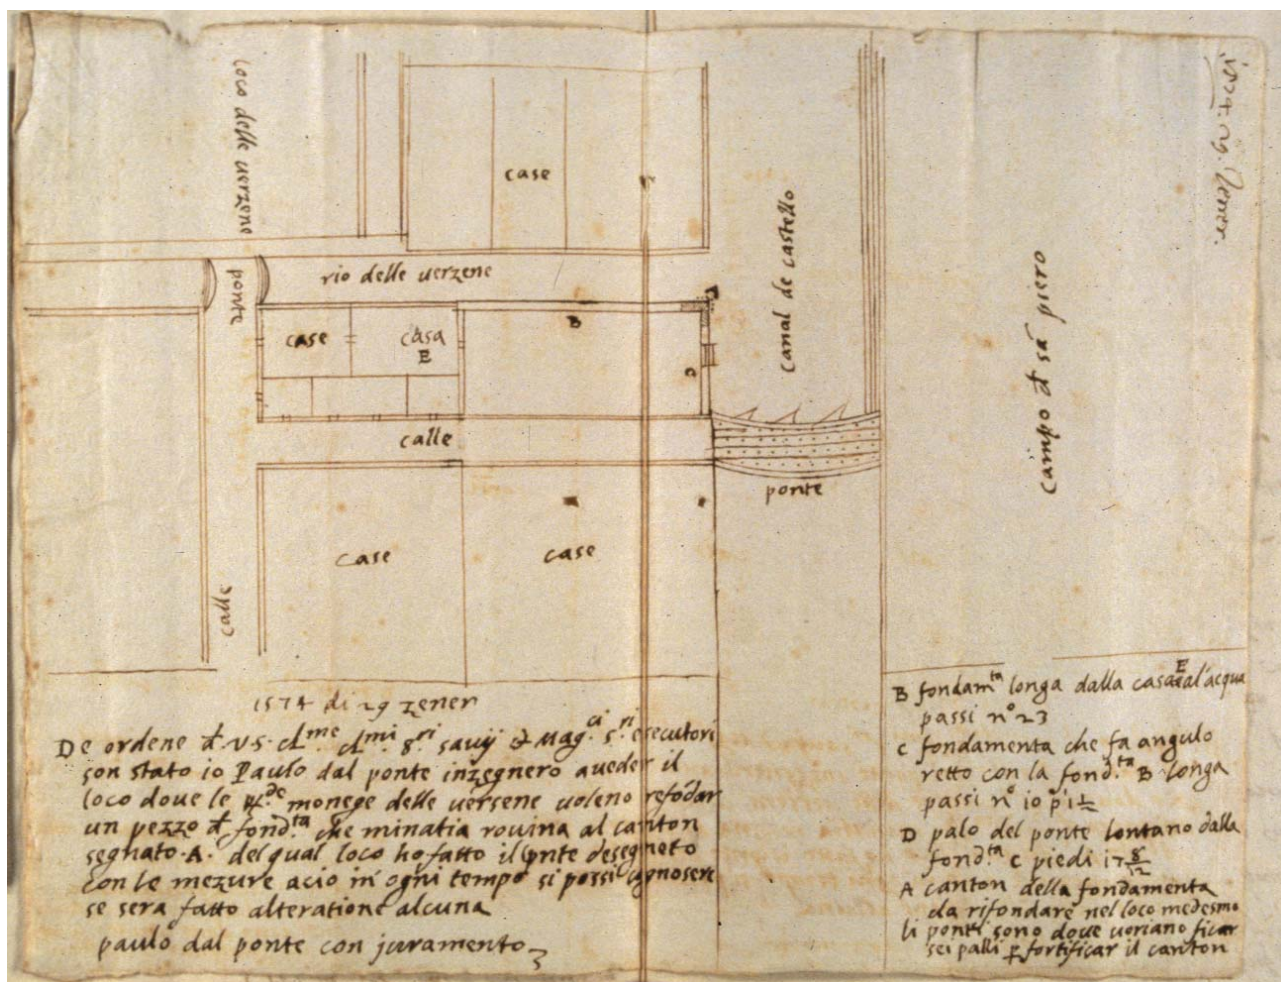 loco delle uerzene
case
rio delle uerzene
ponte
case
casa
E
B
C
canal de castello
campo d sā piero
calle
ponte
case
case
calle
1574 di 29 zener
De ordene d. v. s. cl.me cl.mi s.ri sauij & mag.ci s.ri esecutori
son stato io Paulo dal ponte inzegnero aueder il
loco doue le monege delle uersene uoleno refōdar
un pezzo d fond.ta che minatia rouina al canton
segnato .A. del qual loco ho fatto il pnte desegneto
con le mezure acio in ogni tempo si possi cognosere
se sera fatto alteratione alcuna
paulo dal ponte con juramento
B fondam.ta longa dalla casa E al'acqua
passi n.o 23
C fondamenta che fa angulo
retto con la fond.ta B longa
passi n.o 10 p 1 1/2
D palo del ponte lontano dalla
fond.ta C piedi 17 8/12
A canton della fondamenta
da rifondare nel loco medesmo
li ponti sono doue uoriano ficar
sei palli p fortificar il canton